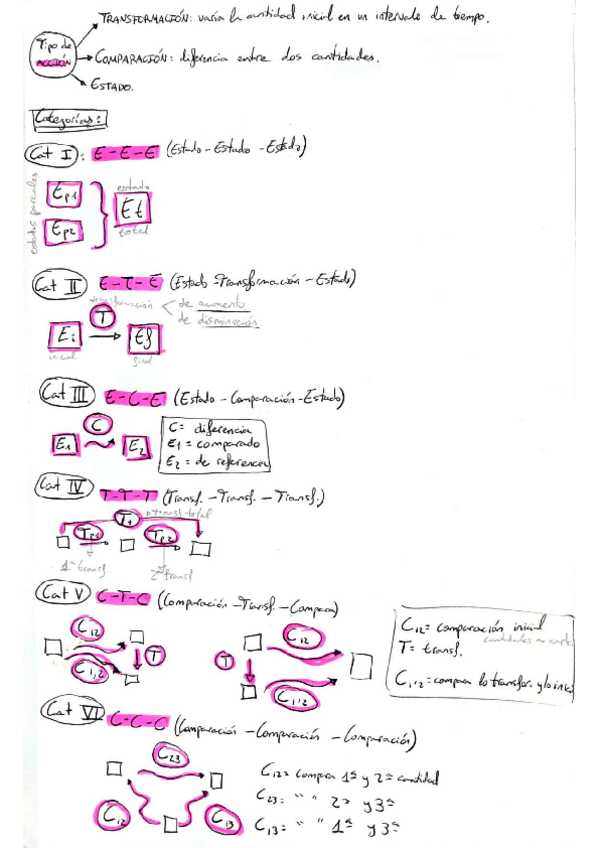 Tipo de acción
TRANSFORMACIÓN: varía la cantidad inicial en un intervalo de tiempo.
COMPARACIÓN: diferencia entre dos cantidades.
ESTADO.
Categorías:
Cat I: E-E-E (Estado-Estado-Estado)
estados parciales
Ep1
Ep2
estado
Et
total
Cat II E-T-E (Estado-Transformación-Estado)
transformación
de aumento
de disminución
T
Ei
Ef
inicial
final
Cat III E-C-E (Estado-Comparación-Estado)
C
E1
E2
C= diferencia
E1= comparado
E2= de referencia
Cat IV T-T-T (Transf.-Transf.-Transf.)
Tt
transf total
Tp1
Tp2
1ª transf
2ª transf
Cat V C-T-C (Comparación-Transf.-Compara)
C12
T
C1'2
T
C12
C1'2
C12= comparación inicial
T= transf.
C1'2= compara lo transfer. y lo inici
Cat VI C-C-C (Comparación-Comparación-Comparación)
C23
C12
C13
C12= compara 1ª y 2ª cantidad
C23= " " 2ª y 3ª
C13= " " 1ª y 3ª